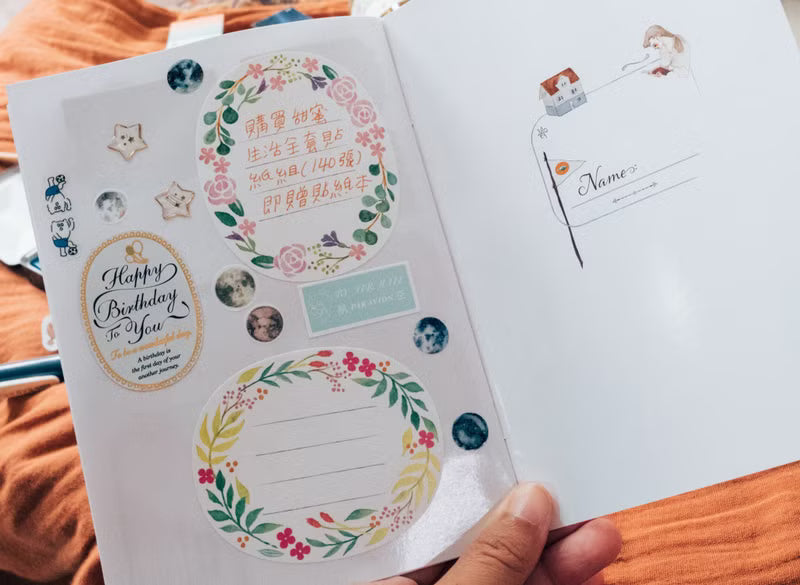 購買甜蜜
生活全套貼
紙組(140張)
即贈貼紙本
Happy
Birthday
To You
To be a wonderful day.
A birthday is
the first day of your
another journey.
PAR AVION
Name: